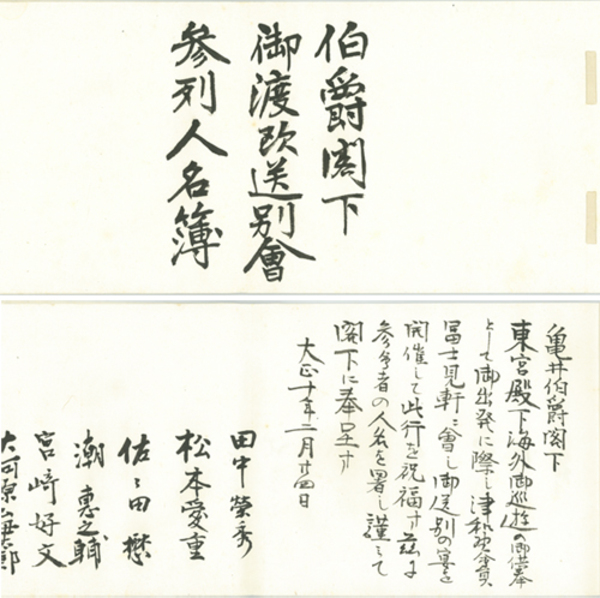 伯爵閣下
御渡欧送別會
参列人名簿
亀井伯爵閣下
東宮殿下海外御巡遊の御供奉
として御出発に際し津和野會員
冨士見軒に會し御送別の宴を
開催して此行を祝福す茲に
参会者の人名を署し謹て
閣下に奉呈す
大正十年二月廿四日
田中榮秀
松本愛重
佐々田懋
潮惠之輔
宮崎好文